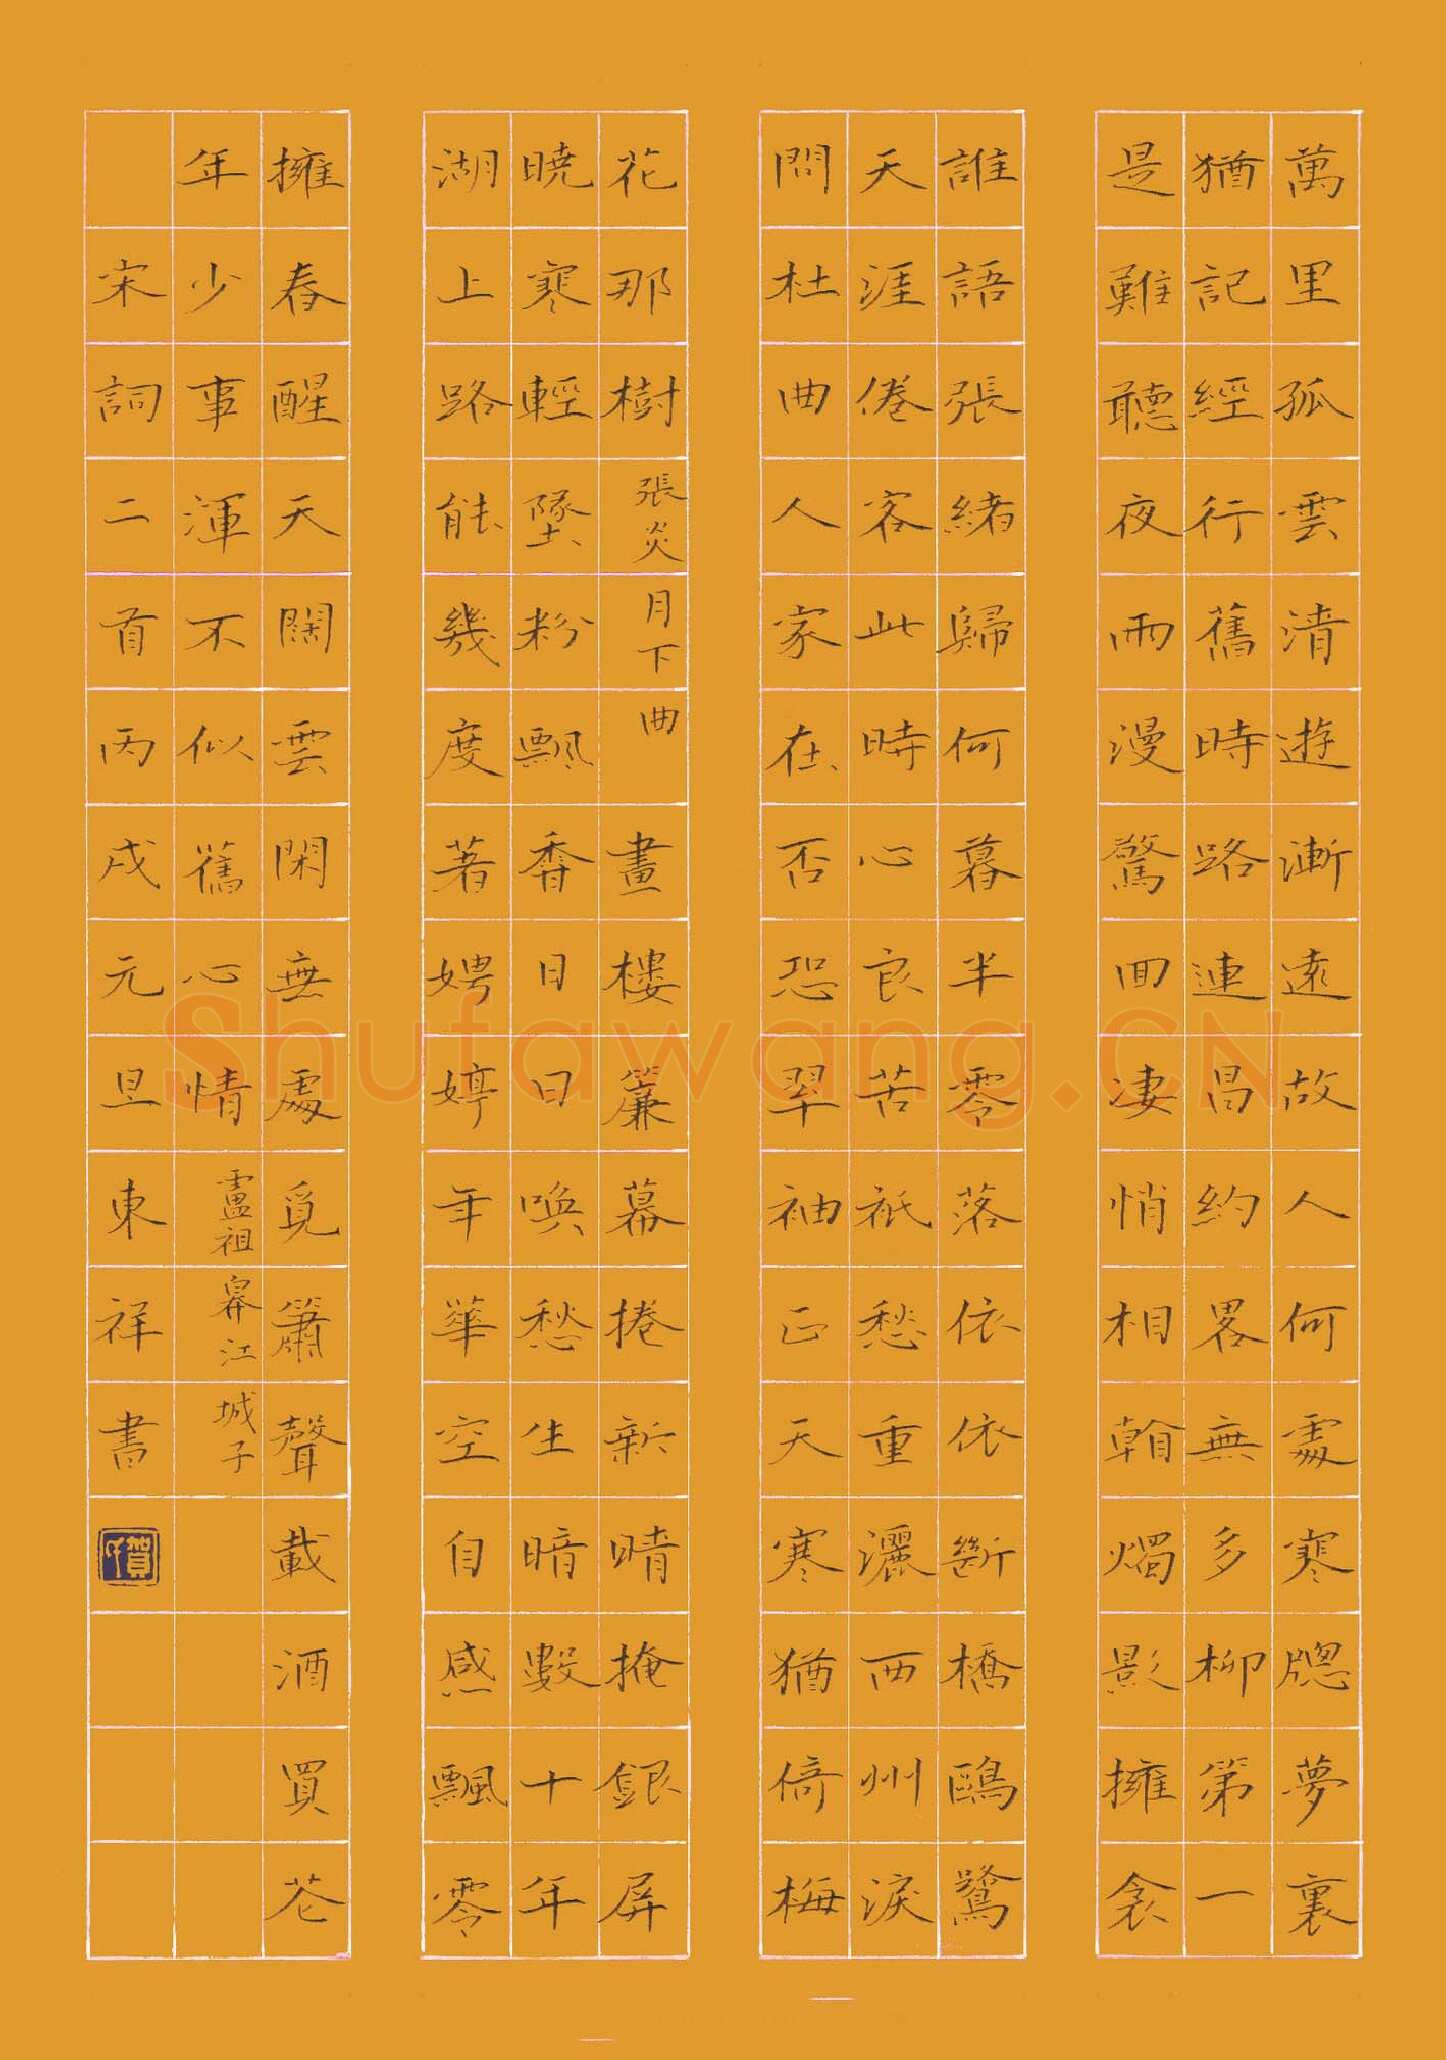 萬里孤雲清遊漸遠故人何處寒牕夢裏
猶記經行舊時路連昌約畧無多柳第一
是難聽夜雨漫驚回凄悄相看燭影擁衾
誰語張緒歸何暮半零落依依斷橋鷗鷺
天涯倦客此時心良苦衹愁重灑西州淚
問杜曲人家在否恐翠袖正天寒猶倚梅
花那樹 張炎 月下曲 畫樓簾幕捲新晴掩銀屏
曉寒輕墜粉飄香日日喚愁生暗數十年
湖上路能幾度著娉婷年華空自感飄零
擁春醒天闊雲閑無處覓簫聲載酒買花
年少事渾不似舊心情 盧祖皋江城子
宋詞二首丙戌元旦東祥書
Shufawang.CN